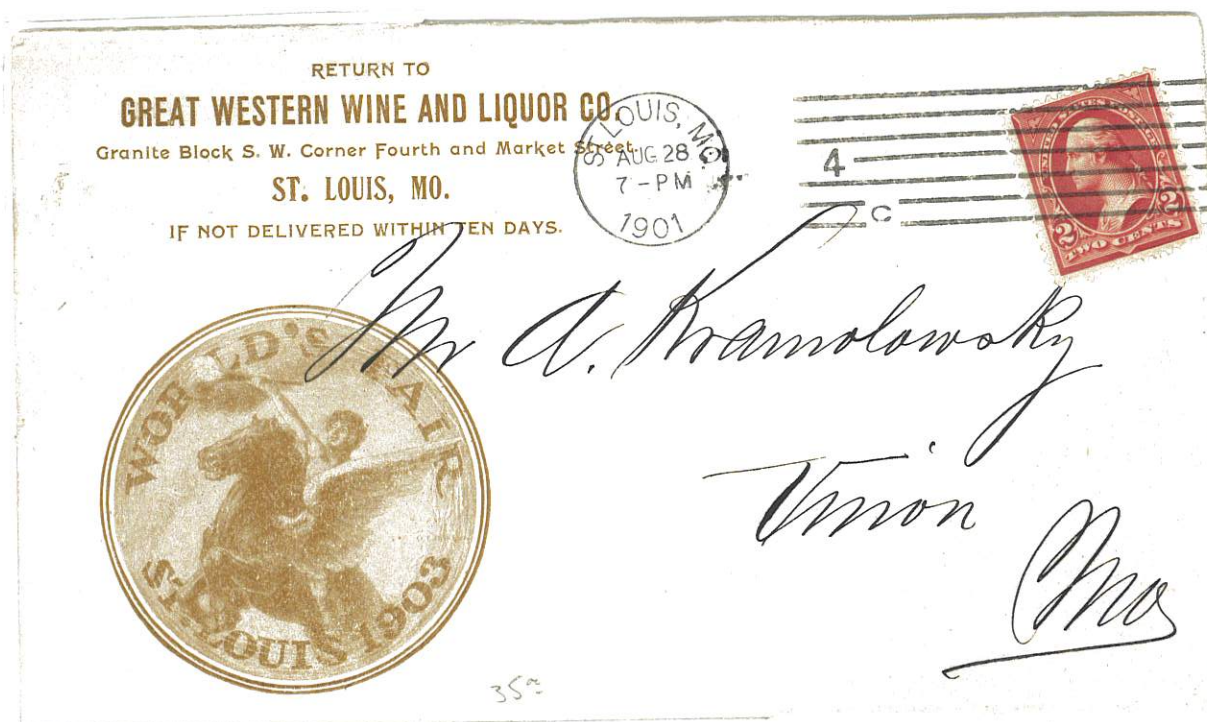 RETURN TO
GREAT WESTERN WINE AND LIQUOR CO.
Granite Block S. W. Corner Fourth and Market Street.
ST. LOUIS, MO.
IF NOT DELIVERED WITHIN TEN DAYS.
ST. LOUIS, MO.
AUG 28
7-PM
1901
4
C
2 2
TWO CENTS
Mr A. Kramolowsky
Union
Mo
WORLD'S FAIR
ST. LOUIS 1903
35